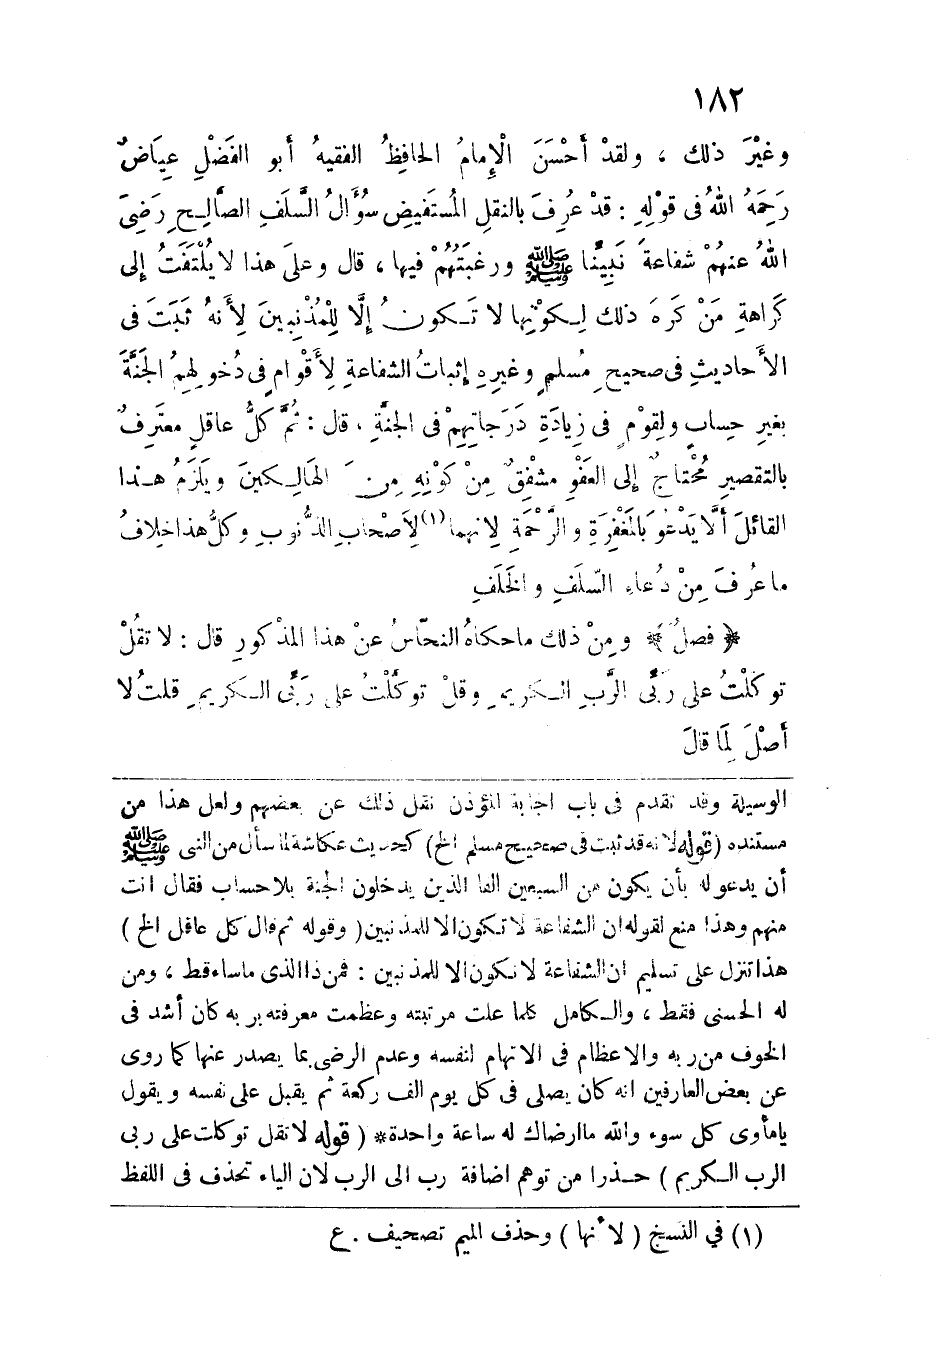 ١٨٢
وغَيْرَ ذلك ، ولقدْ أَحْسَنَ الْإِمامُ الحافِظُ الفقيهُ أبو الفَضْلِ عِيَاضٌ
رَحِمَهُ اللهُ فى قوْلِهِ : قدْ عُرِفَ بالنقلِ المُستفيضِ سؤَالُ السَّلَفِ الصَّالِحِ رَضِىَ
اللهُ عنهُمْ شفاعةَ نَبِيِّنَا ﷺ ورغبَتُهُمْ فيها ، قال وعلَى هذا لا يُلْتَفَتُ إلى
كَرَاهةِ مَنْ كَرِهَ ذلك لِكوْنِها لا تَكونُ إلَّا لِلْمُذْنِبِينَ لِأَنهُ ثَبَتَ فى
الأَحاديثِ فى صحيحِ مُسلمٍ وغيرِهِ إثباتُ الشفاعةِ لِأَقْوامٍ فى دُخولِهِمُ الجَنَّةَ
بغيرِ حِسابٍ ولِقوْمٍ فى زِيادَةِ دَرَجاتِهِمْ فى الجنَّةِ ، قال : ثُمَّ كلُّ عاقلٍ معتَرِفٌ
بالتقصيرِ مُحْتاجٌ إلى العَفْوِ مشفِقٌ مِنْ كوْنِهِ مِنَ الهالِكينَ ويَلزَمُ هـذا
القائلَ أَلَّا يَدْعُوَ بالمَغْفِرَةِ والرَّحْمَةِ لِانهما (١) لِأَصْحابِ الذُّنوبِ وكلُّ هذا خِلافُ
ما عُرِفَ مِنْ دُعاءِ السَّلَفِ والخَلَفِ
﴿ فصلٌ ﴾ ومِنْ ذلك ماحكاهُ النحّاسُ عنْ هذا المذكورِ قال : لا تقُلْ
توكلْتُ على رَبِّى الرَّبِ الكريمِ وقلْ توكَّلْتُ على رَبِّى الكريمِ قلتُ لا
أصْلَ لِمَا قالَ
الوسيلة وقد تقدم فى باب اجابة المؤذن نقل ذلك عن بعضهم ولعل هذا من
مستنده (قوله لانه قد ثبت فى صحيح مسلم الخ) كحديث عكاشة لما سأل من النبى ﷺ
أن يدعو له بأن يكون من السبعين الفا الذين يدخلون الجنة بلاحساب فقال انت
منهم وهذا منع لقوله ان الشفاعة لا تكون الا للمذنبين ( وقوله ثم قال كل عاقل الخ )
هذا تنزل على تسليم ان الشفاعة لا تكون الا للمذنبين : فمن ذا الذى ماساء قط ، ومن
له الحسنى فقط ، والكامل كلما علت مرتبته وعظمت معرفته بربه كان أشد فى
الخوف من ربه والاعظام فى الاتهام لنفسه وعدم الرضى بما يصدر عنها كما روى
عن بعض العارفين انه كان يصلى فى كل يوم الف ركعة ثم يقبل على نفسه ويقول
يامأوى كل سوء والله ماارضاك له ساعة واحدة* ( قوله لا تقل توكلت على ربى
الرب الكريم ) حـذرا من توهم اضافة رب الى الرب لان الياء تحذف فى اللفظ
(١) في النسخ ( لأنها ) وحذف الميم تصحيف . ع